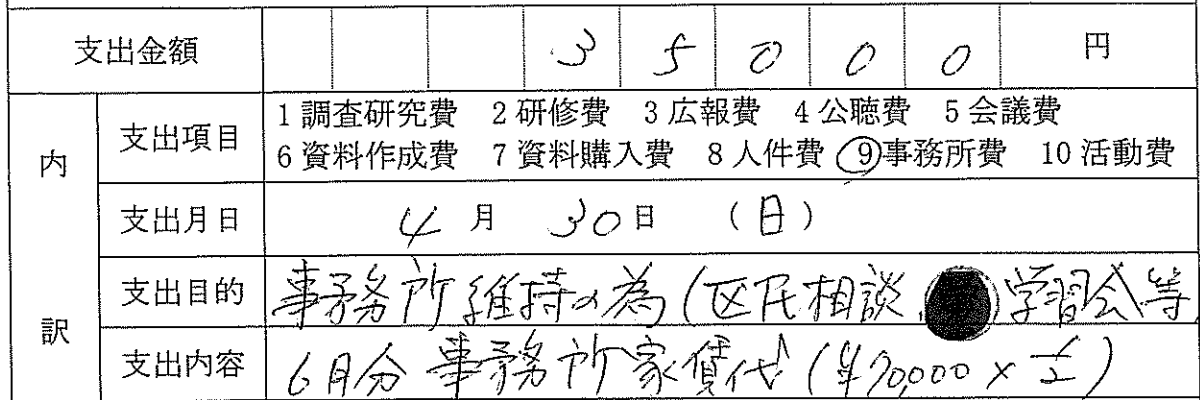 支出金額 35000 円
内訳
支出項目 1 調査研究費 2 研修費 3 広報費 4 公聴費 5 会議費
6 資料作成費 7 資料購入費 8 人件費 ⑨事務所費 10 活動費
支出月日 4 月 30 日 (日)
支出目的 事務所維持の為(区民相談、学習会等
支出内容 6月分 事務所家賃代(¥70,000 × 1/2)